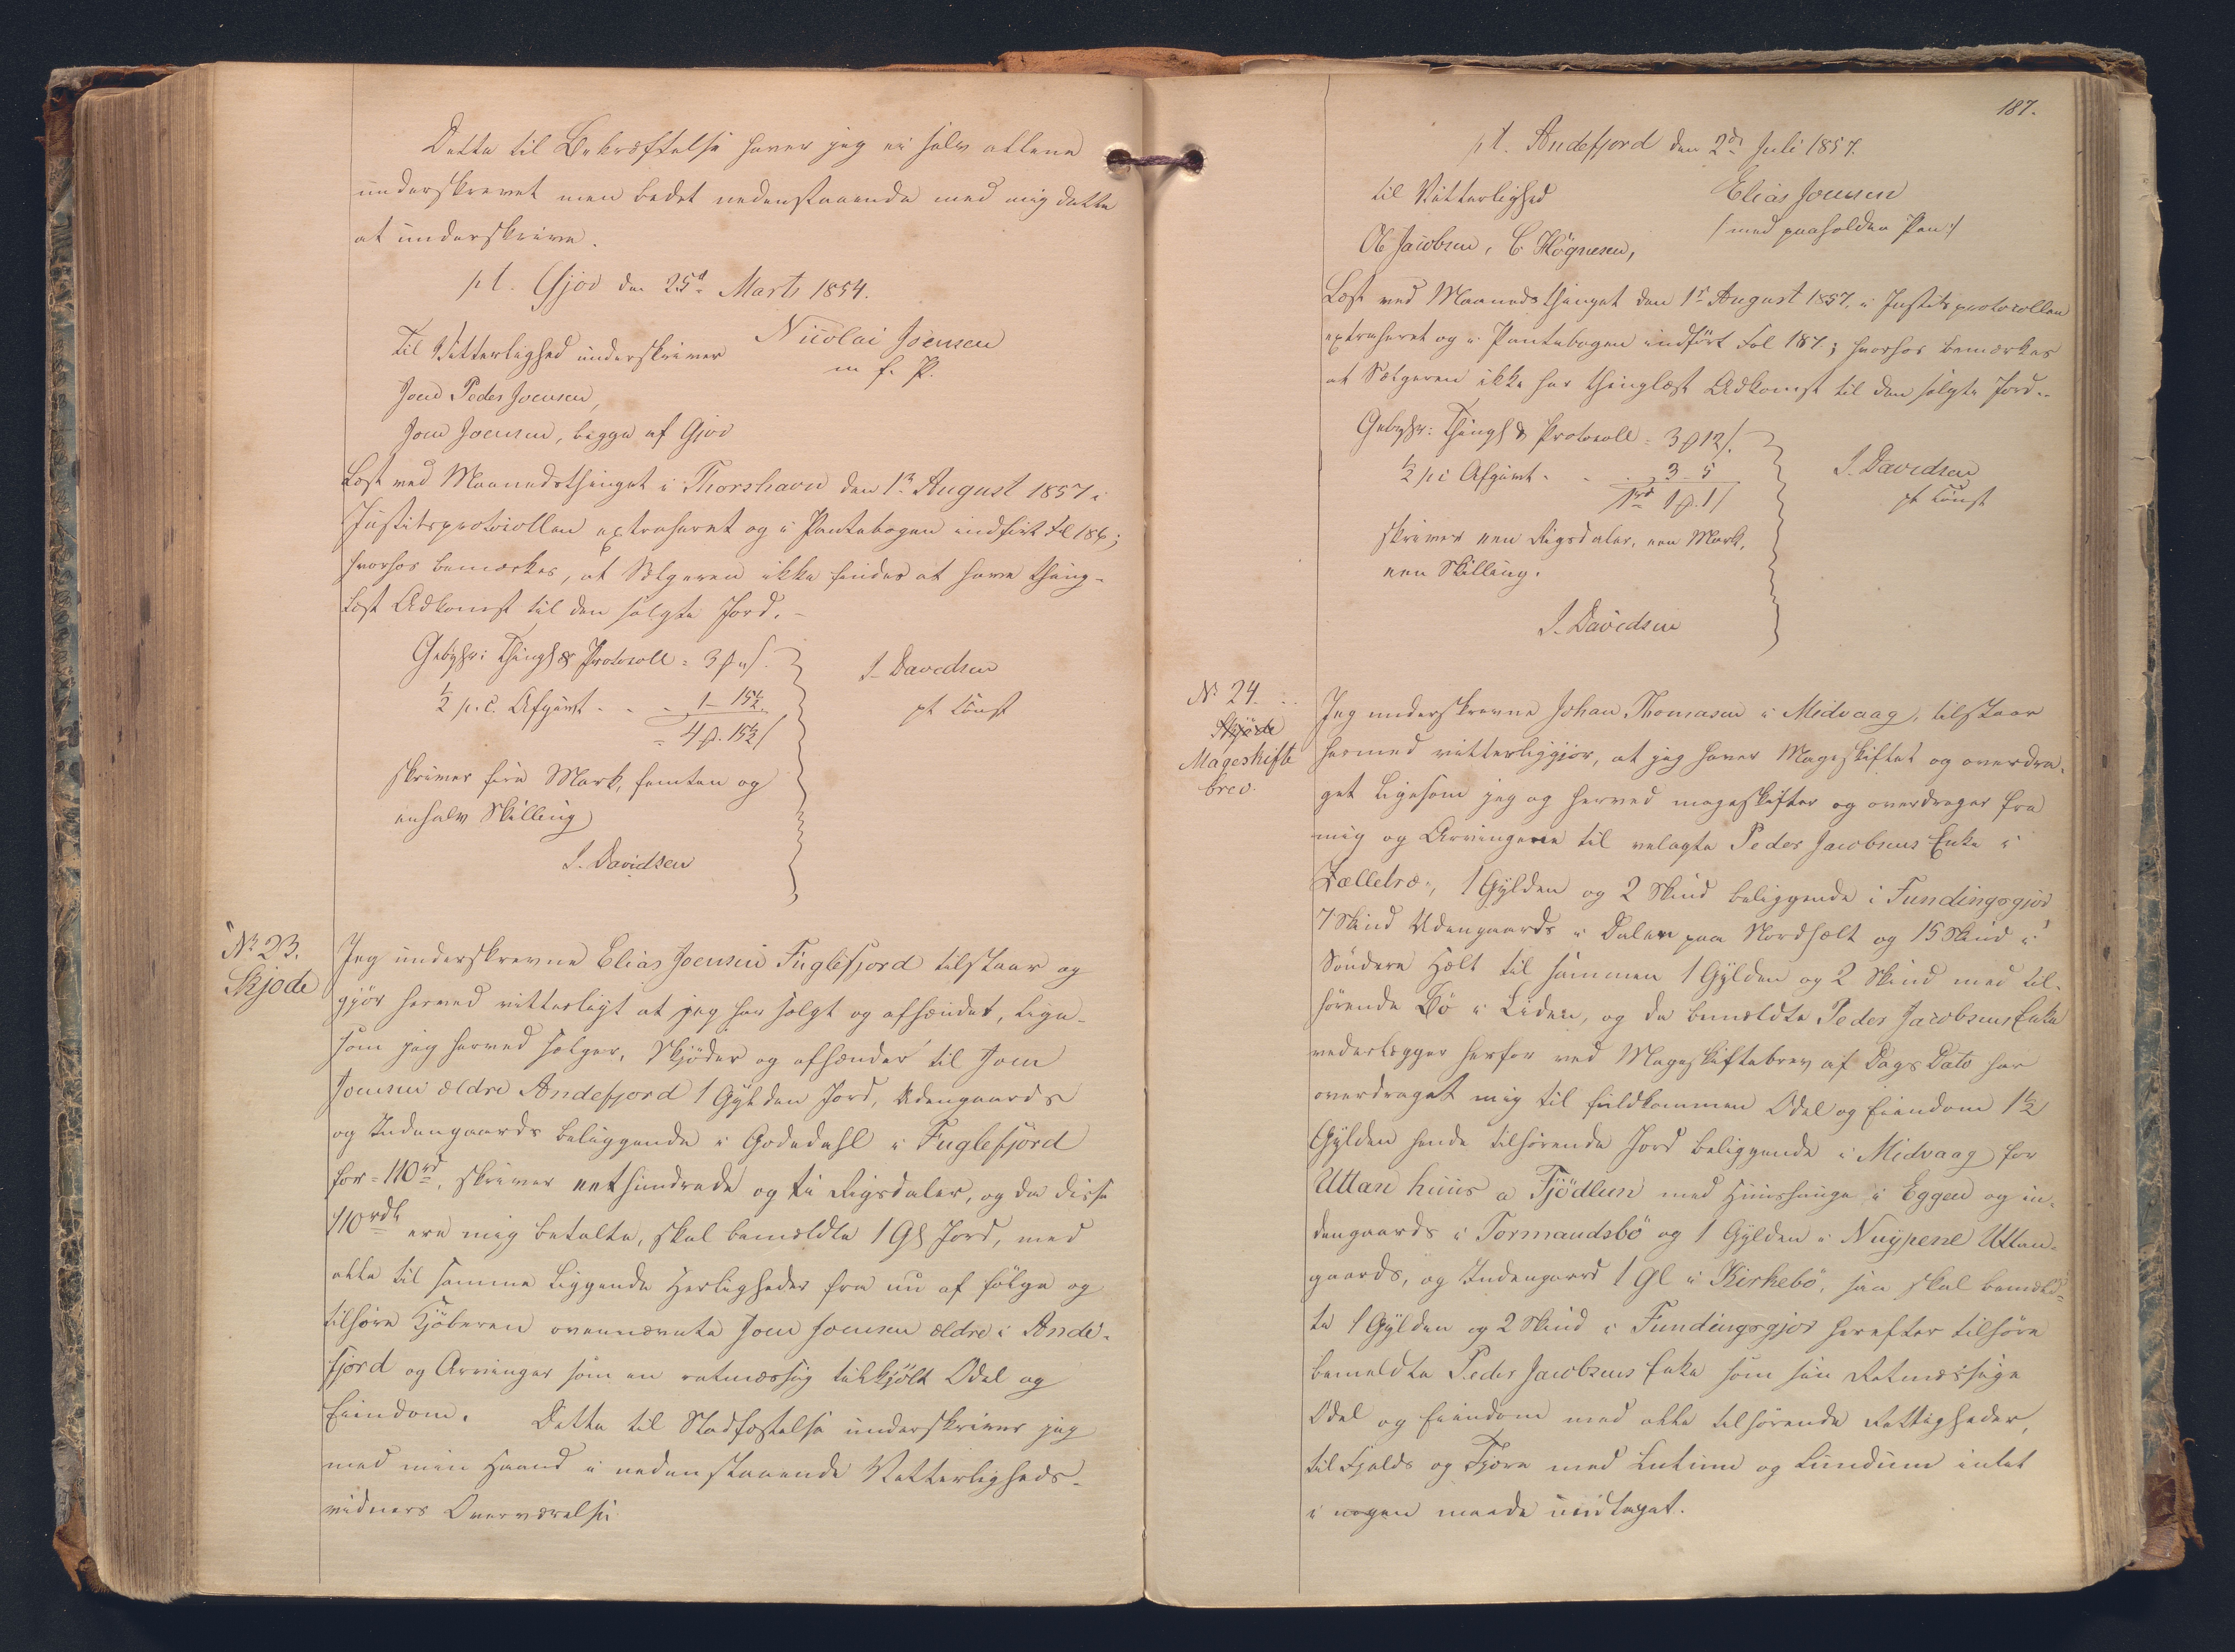 Dette til Bekræftelse haver jeg ei selv allene
underskrevet men bedet nedenstaaende med mig dette
at underskrive.
pt. Gjov den 25d Marts 1854.
Til Vitterlighed underskriver
Nicolai Joensen
m f. P.
Joen Peder Joensen,
Joen Joensen, begge af Gjov
Læst ved Maanedsthinget i Thorshavn den 1ste August 1857 i
Justitsprotocollen extraheret og i Pantebogen indført Fol 186;
hvorhos bemærkes, at Sælgeren ikke findes at have thing-
læst Adkomst til den solgte Jord.
Gebyhr: Thingl & Protocoll = 3 ß
½ p.C. Afgivt - - - 1 - 15½
= 4 ß. 15½
skriver fire Mark, femten og
enhalv Skilling
J. Davidsen
J. Davidsen
pt const
No 23.
Skjøde
Jeg underskrevne Elias Joensen Fuglefjord tilstaar og
gjør herved vitterligt at jeg har solgt og afhændet, lige-
som jeg herved sælger, Skjøder og afhænder til Joen
Joensen ældre Andefjord 1 Gylden Jord, Udengaards
og Indengaards beliggende i Godedahl i Fuglefjord
for = 110 rd, skriver eethundrede og ti Rigsdaler, og da disse
110 rdl ere mig betalte, skal bemældte 1 Gl Jord, med
alle til samme liggende Herligheder fra nu af følge og
tilhøre Kjøberen ovennævnte Joen Joensen ældre i Ande-
fjord og Arvinger som en retmæssig tilkjøbt Odel og
Eiendom. Dette til Stadfæstelse underskriver jeg
med min Haand i nedenstaaende Vitterligheds-
vidners Overværelse
187.
pt. Andefjord den 2d Juli 1857.
til Vitterlighed
Elias Joensen
/: med paaholden Pen :/
Ol Jacobsen, C Høgnesen,
Læst ved Maanedsthinget den 1ste August 1857, i Justitsprotocollen
extraheret og i Pantebogen indført Fol 187; hvorhos bemærkes
at Sælgeren ikke har thinglæst Adkomst til den solgte Jord.
Gebyhr: Thingl & Protocoll = 3 ß 12
½ pC Afgivt - - 3 - 5
1rd 1 ß. 1
skriver een Rigsdaler, een Mark,
een Skilling.
J. Davidsen
J. Davidsen
pt const
No 24.
Skjøde
Mageskifte
brev.
Jeg underskrevne Johan Thomasen i Midvaag, tilstaar
hermed vitterliggjør, at jeg haver Mageskiftet og overdra-
get ligesom jeg og herved mageskifter og overdrager fra
mig og Arvingerne til velagte Peder Jacobsens Enke i
Fælletræ, 1 Gylden og 2 Skind beliggende i Fundingsgjov
7 Skind Udengaards i Dalen paa Nordhælt og 15 Skind i
Søndere Hælt til sammen 1 Gylden og 2 Skind med til-
hørende Bø i Liden, og da bemældte Peder Jacobsens Enke
vederlægger herfor ved Mageskiftebrev af Dags Dato har
overdraget mig til fuldkommen Odel og Eiendom 1½
Gylden hende tilhørende Jord beliggende i Midvaag for
Uttan huus a Fjødlun med Huushauge i Eggen og in-
dengaards i Tormandsbø og 1 Gylden i Nuypene Uttan-
gaards, og Indengaard 1 Gl i Kirkebø, saa skal bemæld-
te 1 Gylden og 2 Skind i Fundingsgjov herefter tilhøre
bemældte Peder Jacobsens Enke som sin Retmæssige
Odel og Eiendom med alle tilhørende Rettigheder,
til Fjelds og Fjøre med Lutum og Lundum intet
i nogen maade undtaget.